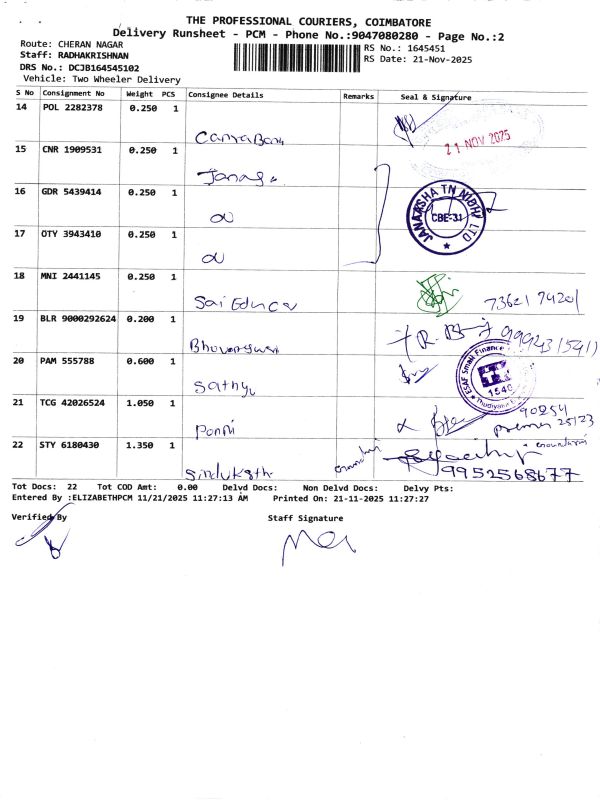 THE PROFESSIONAL COURIERS, COIMBATORE
Delivery Runsheet - PCM - Phone No.:9047080280 - Page No.:2
Route: CHERAN NAGAR
RS No.: 1645451
Staff: RADHAKRISHNAN
RS Date: 21-Nov-2025
DRS No.: DCJB164545102
Vehicle: Two Wheeler Delivery
S No Consignment No Weight PCS Consignee Details Remarks Seal & Signature
14 POL 2282378 0.250 1
Canra Bank
21 NOV 2025
15 CNR 1909531 0.250 1
16 GDR 5439414 0.250 1
JANAAKSHA TN NIDHI LTD
CBE-31
17 OTY 3943410 0.250 1
18 MNI 2441145 0.250 1
Sai Educa
7362174201
19 BLR 9000292624 0.200 1
Bhuvaneswari
ESAF Small Finance
20 PAM 555788 0.600 1
Sathy
21 TCG 42026524 1.050 1
Ponni
90254
25123
22 STY 6180430 1.350 1
9952568677
Tot Docs: 22 Tot COD Amt: 0.00 Delvd Docs: Non Delvd Docs: Delvy Pts:
Entered By :ELIZABETHPCM 11/21/2025 11:27:13 AM Printed On: 21-11-2025 11:27:27
Verified By
Staff Signature